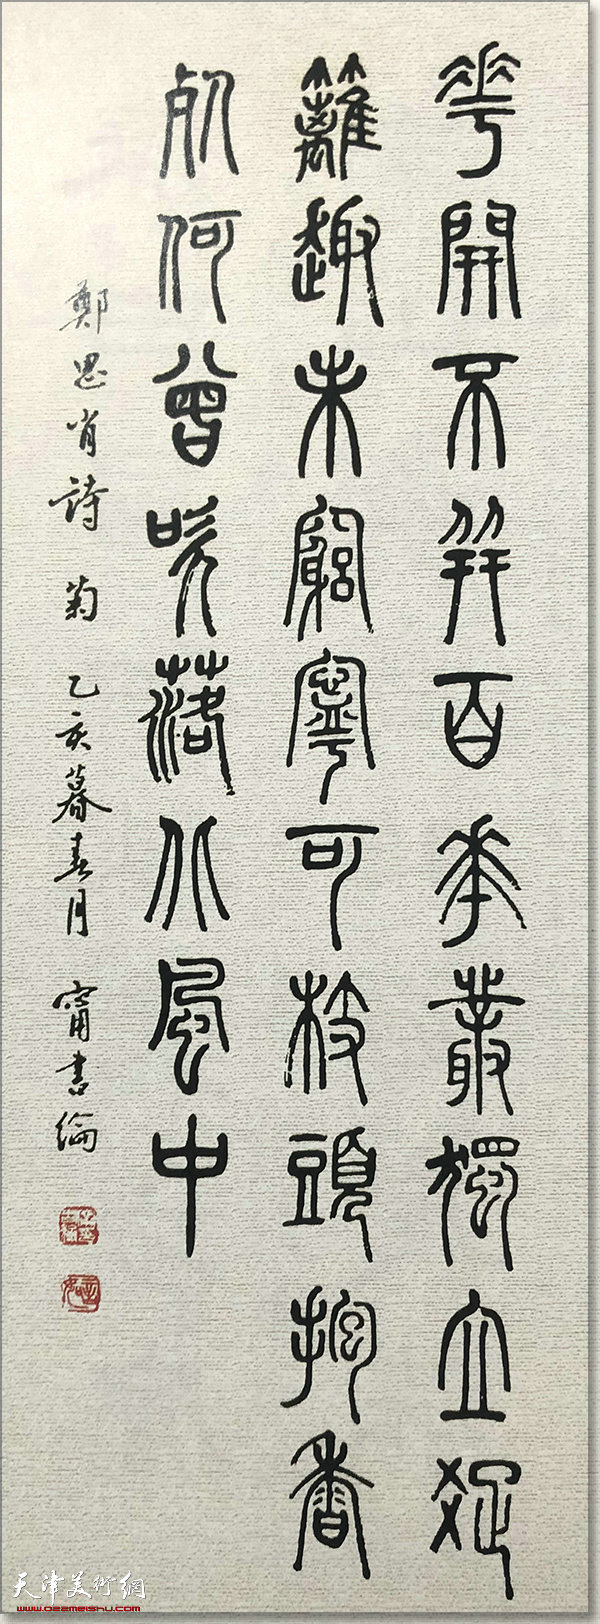 華開不并百華叢獨立疏
籬趣未窮寧可枝頭抱香
死何曾吹落北風中
鄭思肖詩 菊 乙亥暮春月 甯書綸
天津美術網
www.022meishu.com